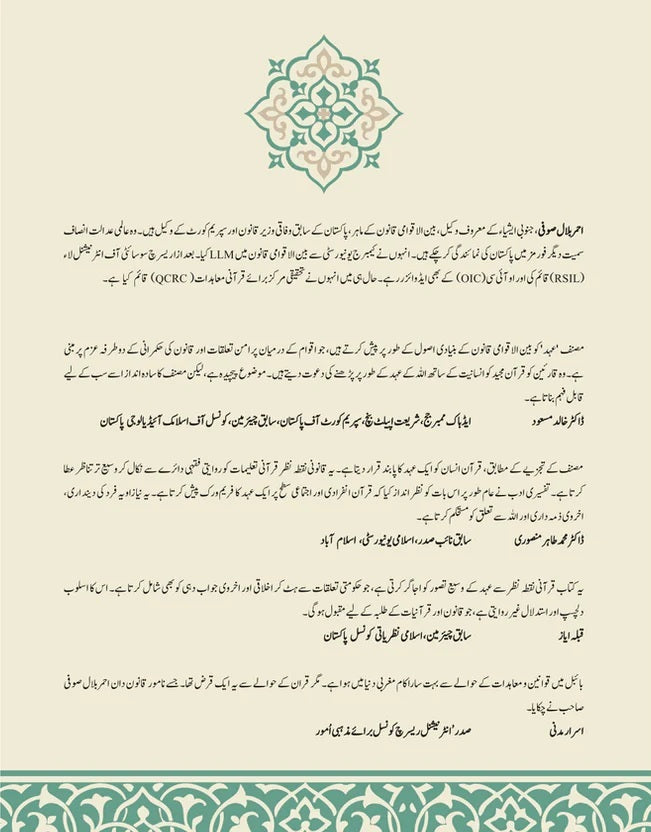 احمر بلال صوفی، جنوبی ایشیاء کے معروف وکیل، بین الاقوامی قانون کے ماہر، پاکستان کے سابق وفاقی وزیر قانون اور سپریم کورٹ کے وکیل ہیں۔ وہ عالمی عدالت انصاف
سمیت دیگر فورمز میں پاکستان کی نمائندگی کر چکے ہیں۔ انہوں نے کیمبرج یونیورسٹی سے بین الاقوامی قانون میں LLM کیا۔ بعد ازاں ریسرچ سوسائٹی آف انٹرنیشنل لاء
(RSIL) قائم کی اور او آئی سی (OIC) کے بھی ایڈوائزر رہے۔ حال ہی میں انہوں نے تحقیقی مرکز برائے قرآنی معاہدات (QCRC) قائم کیا ہے۔
مصنف 'عہد' کو بین الاقوامی قانون کے بنیادی اصول کے طور پر پیش کرتے ہیں، جو اقوام کے درمیان پرامن تعلقات اور قانون کی حکمرانی کے دوطرفہ عزم پر مبنی
ہے۔ وہ قارئین کو قرآن مجید کو انسانیت کے ساتھ اللہ کے عہد کے طور پر پڑھنے کی دعوت دیتے ہیں۔ موضوع پیچیدہ ہے، لیکن مصنف کا سادہ انداز اسے سب کے لیے
قابل فہم بناتا ہے۔
ڈاکٹر خالد مسعود ایڈہاک ممبر جج، شریعت اپیلٹ بنچ، سپریم کورٹ آف پاکستان، سابق چیئرمین، کونسل آف اسلامک آئیڈیالوجی پاکستان
مصنف کے تجزیے کے مطابق، قرآن انسان کو ایک عہد کا پابند قرار دیتا ہے۔ یہ قانونی نقطہ نظر قرآنی تعلیمات کو روایتی فقہی دائرے سے نکال کر وسیع تر تناظر عطا
کرتا ہے۔ تفسیری ادب نے عام طور پر اس بات کو نظر انداز کیا کہ قرآن انفرادی اور اجتماعی سطح پر ایک عہد کا فریم ورک پیش کرتا ہے۔ یہ نیا زاویہ فرد کی دینداری،
اخروی ذمہ داری اور اللہ سے تعلق کو مستحکم کرتا ہے۔
ڈاکٹر محمد طاہر منصوری سابق نائب صدر، اسلامی یونیورسٹی، اسلام آباد
یہ کتاب قرآنی نقطہ نظر سے عہد کے وسیع تصور کو اجاگر کرتی ہے، جو حکومتی تعلقات سے ہٹ کر اخلاقی اور اخروی جواب دہی کو بھی شامل کرتا ہے۔ اس کا اسلوب
دلچسپ اور استدلال غیر روایتی ہے، جو قانون اور قرآنیات کے طلبہ کے لیے مقبول ہو گی۔
قبلہ ایاز سابق چیئرمین، اسلامی نظریاتی کونسل پاکستان
بائبل میں قوانین و معاہدات کے حوالے سے بہت سارا کام مغربی دنیا میں ہوا ہے۔ مگر قران کے حوالے سے یہ ایک قرض تھا۔ جسے نامور قانون دان احمر بلال صوفی
صاحب نے چکایا۔
اسرار مدنی صدر' انٹرنیشنل ریسرچ کونسل برائے مذہبی اُمور